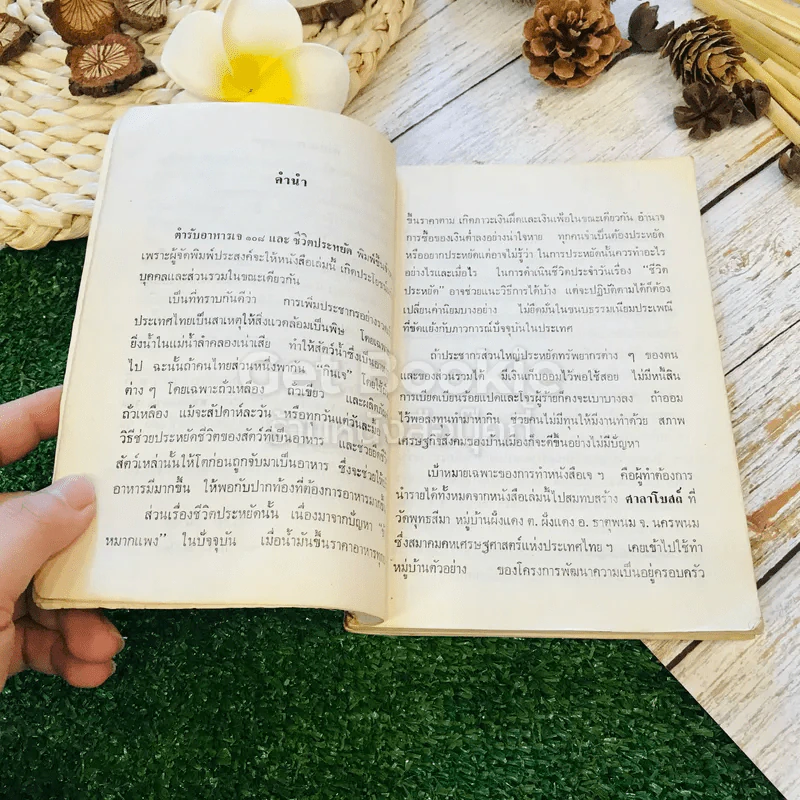 คำนำ
ตำรับอาหารเจ ๑๐๘ และ ชีวิตประหยัด พิมพ์ขึ้น
เพราะผู้จัดพิมพ์ประสงค์จะให้หนังสือเล่มนี้ เกิดประโยชน์
บุคคลและส่วนรวมในขณะเดียวกัน
เป็นที่ทราบกันดีว่า การเพิ่มประชากรอย่างรวด
ประเทศไทยเป็นสาเหตุให้สิ่งแวดล้อมเป็นพิษ โดยเฉพาะ
ยิ่งน้ำในแม่น้ำลำคลองเน่าเสีย ทำให้สัตว์น้ำซึ่งเป็นอาหาร
ไป ฉะนั้นถ้าคนไทยส่วนหนึ่งพากัน "กินเจ" โดยใช้ถั่ว
ต่าง ๆ โดยเฉพาะถั่วเหลือง ถั่วเขียว และผลิตภัณ
ถั่วเหลือง แม้จะสัปดาห์ละวัน หรือทุกวันแต่วันละมื้อ
วิธีช่วยประหยัดชีวิตของสัตว์ที่เป็นอาหาร และช่วยยืดชีวิ
สัตว์เหล่านั้นให้โตก่อนถูกจับมาเป็นอาหาร ซึ่งจะช่วยให้
อาหารมีมากขึ้น ให้พอกับปากท้องที่ต้องการอาหารมากขึ้น
ส่วนเรื่องชีวิตประหยัดนั้น เนื่องมาจากปัญหา
หมากแพง" ในปัจจุบัน เมื่อน้ำมันขึ้นราคาอาหารทุก
ขึ้นราคาตาม เกิดภาวะเงินฝืดและเงินเฟ้อในขณะเดียวกัน อำนาจ
การซื้อของเงินต่ำลงอย่างน่าใจหาย ทุกคนจำเป็นต้องประหยัด
หรืออยากประหยัดแต่อาจไม่รู้ว่า ในการประหยัดนั้นควรทำอะไร
อย่างไรและเมื่อไร ในการดำเนินชีวิตประจำวันเรื่อง "ชีวิต
ประหยัด" อาจช่วยแนะวิธีการได้บ้าง แต่จะปฏิบัติตามได้ก็ต้อง
เปลี่ยนค่านิยมบางอย่าง ไม่ยึดมั่นในขนบธรรมเนียมประเพณี
ที่ขัดแย้งกับภาวการณ์ปัจจุบันในประเทศ
ถ้าประชากรส่วนใหญ่ประหยัดทรัพยากรต่าง ๆ ของตน
และของส่วนรวมได้ มีเงินเก็บออมไว้พอใช้สอย ไม่มีหนี้สิน
การเบียดเบียนร้อยแปดและโจรผู้ร้ายก็คงจะเบาบางลง ถ้าออม
ไว้พอลงทุนทำมาหากิน ช่วยคนไม่มีทุนให้มีงานทำด้วย สภาพ
เศรษฐกิจสังคมของบ้านเมืองก็จะดีขึ้นอย่างไม่มีปัญหา
เป้าหมายเฉพาะของการทำหนังสือเจ ฯ คือผู้ทำต้องการ
นำรายได้ทั้งหมดจากหนังสือเล่มนี้ไปสมทบสร้าง ศาลาโบสถ์ ที่
วัดพุทธสีมา หมู่บ้านผึ่งแดด ต. ผึ่งแดด อ. ธาตุพนม จ. นครพนม
ซึ่งสมาคมคหเศรษฐศาสตร์แห่งประเทศไทย ฯ เคยเข้าไปใช้ทำ
หมู่บ้านตัวอย่าง ของโครงการพัฒนาความเป็นอยู่ครอบครัว